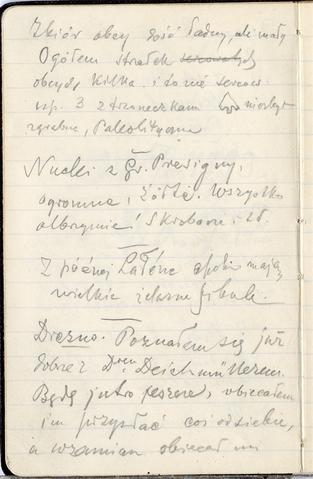 Zbiór obcy dość ładny, ale mały
Ogółem strzałek sercowatych
obcych kilka i to nie sercow.
np. 3 z trzoneczkam niezbyt
zgrabne, Paleolityczne
Nuclei z Gr. Presigny,
ogromne, żółte. Wszystko
olbrzymie! Skrobacze i t.d.
Z późnej Latène epoki mają
wielkie żelazne fibule.
Drezno. Poznałem się już
dobrze z Drem Deichmüllerem.
Będę jutro jeszcze, obiecałem
im przysłać coś od siebie,
a wzamian obiecał mi